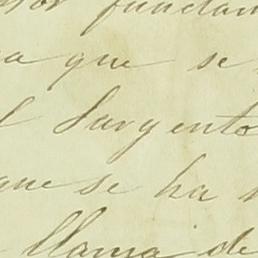 fundam
a que se
l Sargento
que se ha
llama de